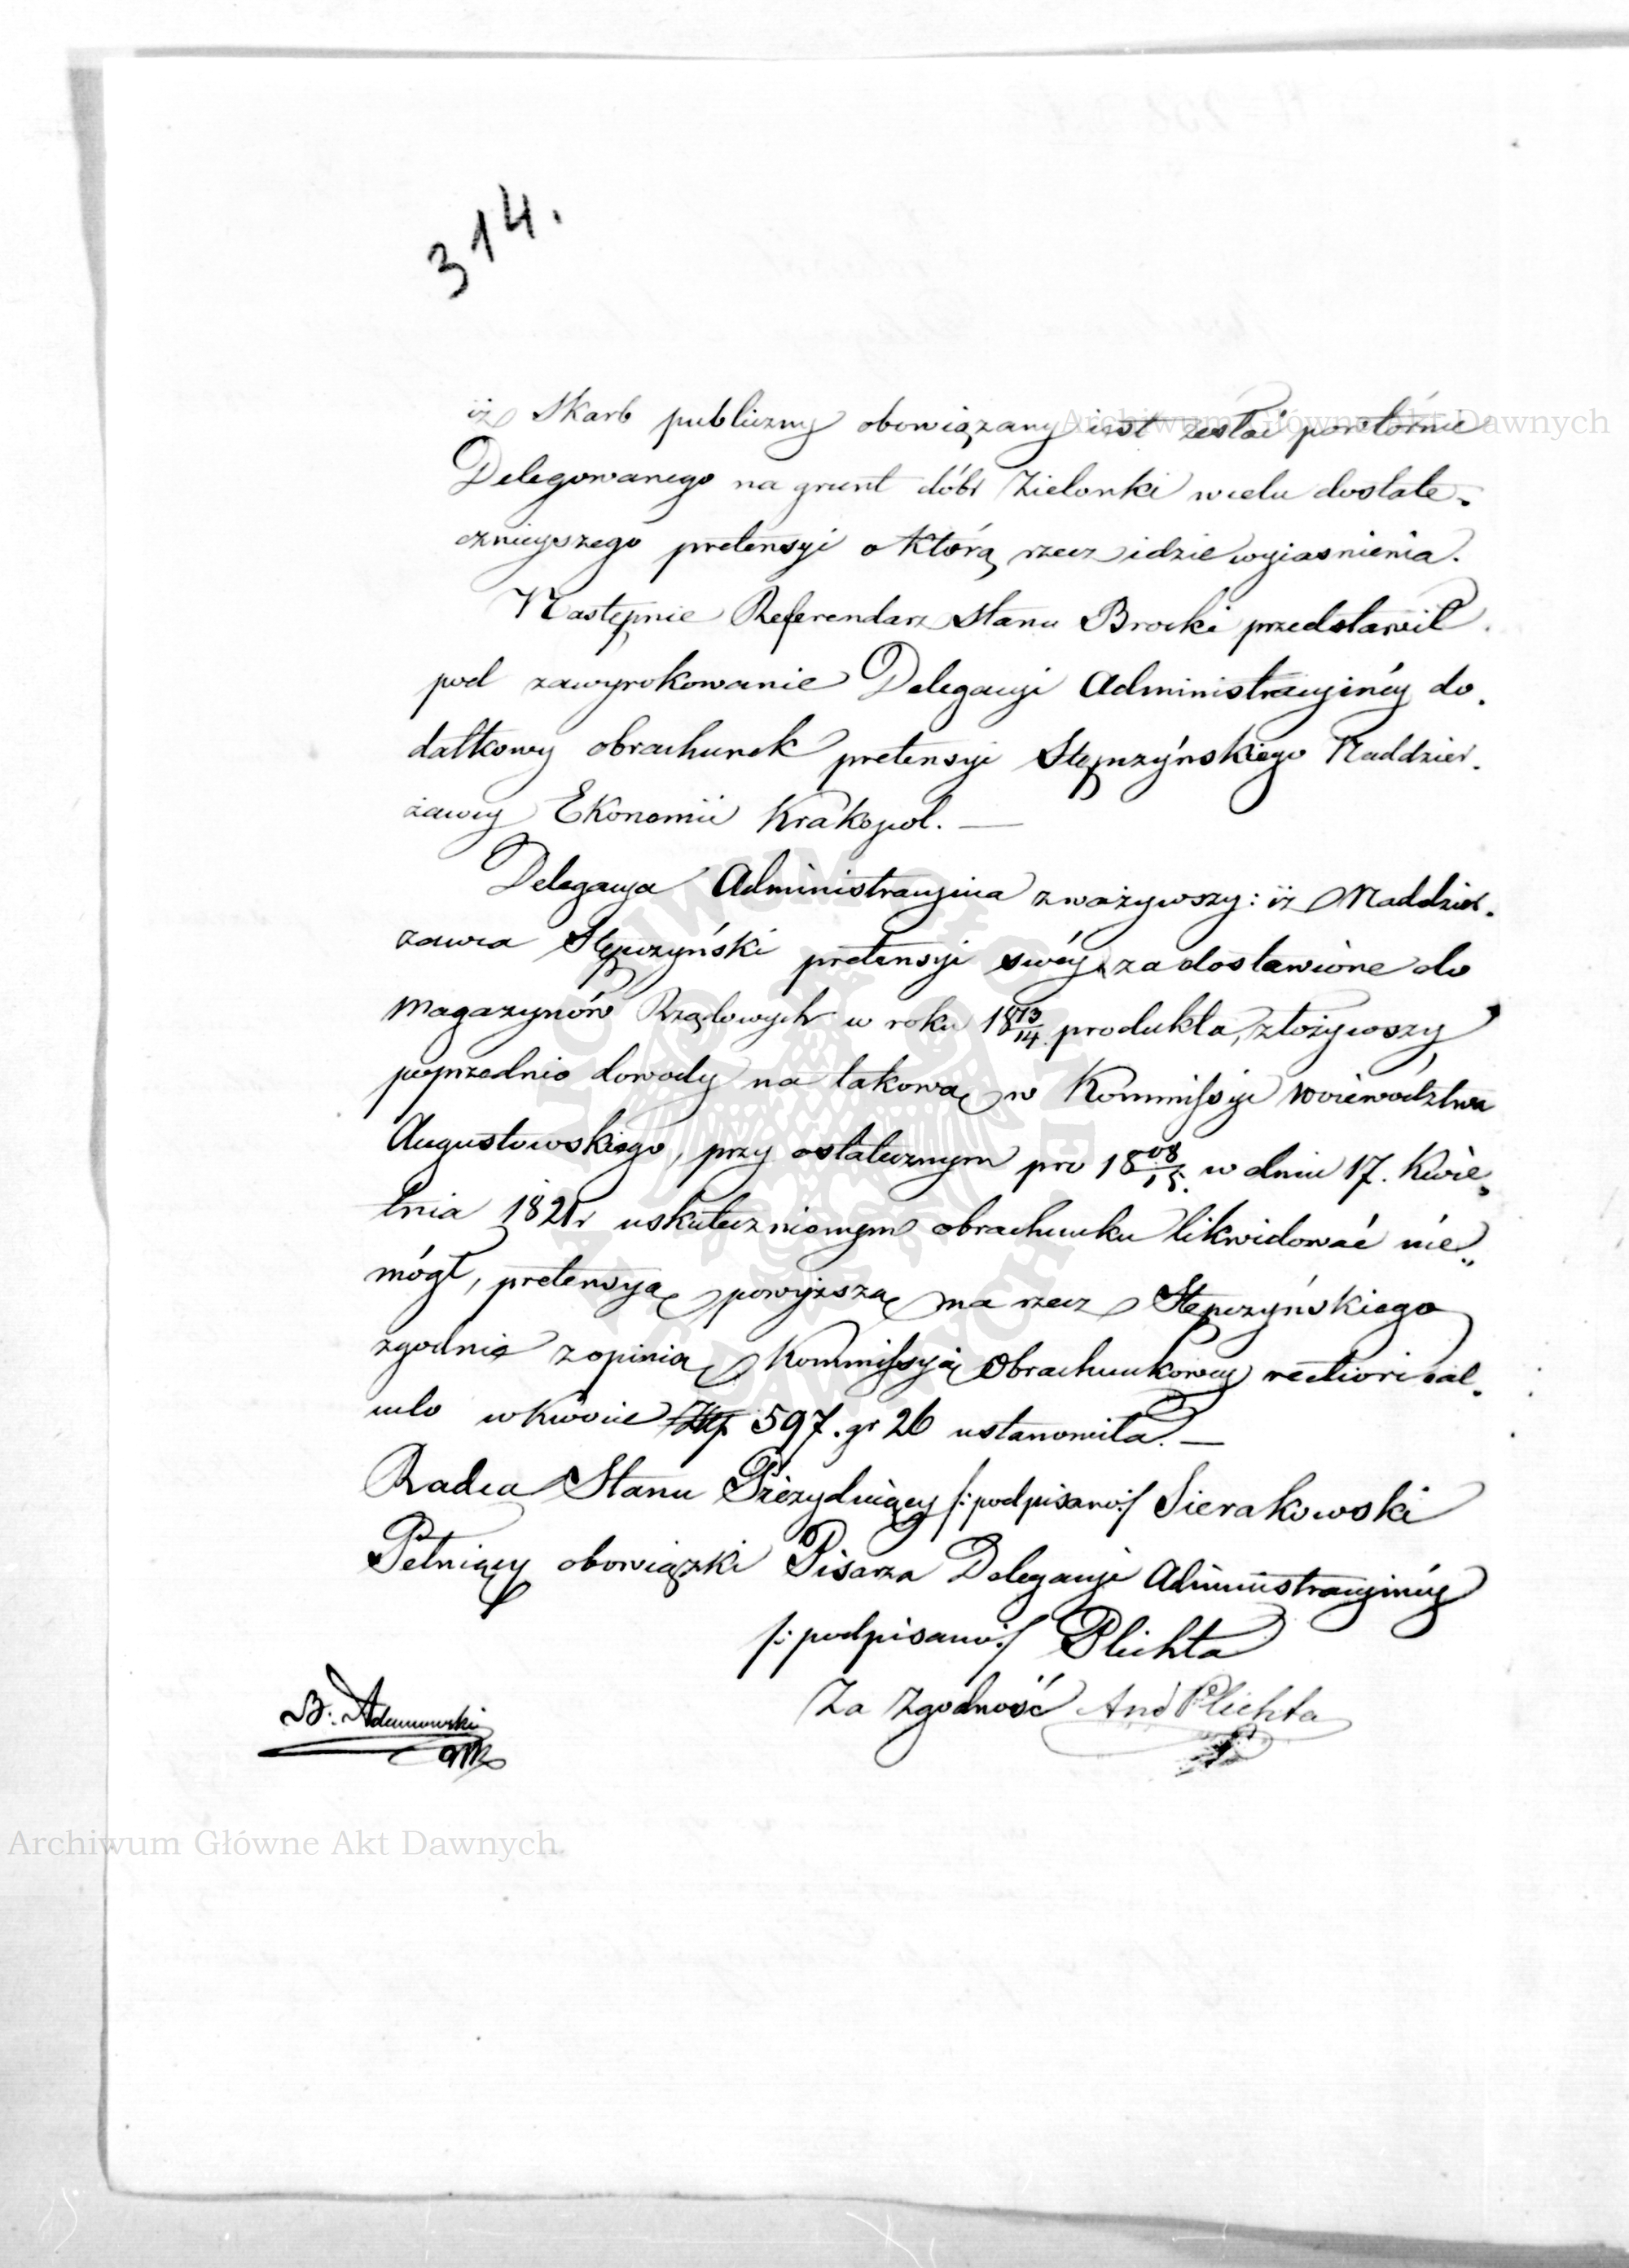 314.
iż Skarb publiczny obowiązany iest zesłać powtórnie
Archiwum Główne Akt Dawnych
Delegowanego na grunt dóbr Zielonki w celu dostate-
cznieyszego pretensyi o którą rzecz idzie wyiasnienia.
Następnie Referendarz Stanu Brocki przedstawił
pod zawyrokowanie Delegacyi Administracyinéy do-
datkowy obrachunek pretensyi Stępczyńskiego Naddzier-
żawcy Ekonomii Krakopol. —
Delegacya Administracyina zważywszy: iż Naddzier-
zawca Stępczyński pretensyi swéy za dostawione do
Magazynów Rządowych w roku 18 13/14 produkta, złożywszy
poprzednio dowody na takową w Kommissyi Woiewództwa
Augustowskiego, przy ostatecznym pro 18 08/15. w dniu 17. Kwie-
tnia 1821r uskutecznionym obrachunku likwidować nie
mógł, pretensyą powyższą na rzecz Stępczyńskiego
zgodnie z opinią Kommissyi Obrachunkowey rectiori cal-
culo w kwocie Złp 597. gr 26 ustanowiła. —
Radca Stanu Prezyduiący /: podpisano :/ Sierakowski
Pełniący obowiązki Pisarza Delegacyi Administracyinéy
/: podpisano :/ Plichta
Za Zgodność And Plichta
B. Adamowski
Archiwum Główne Akt Dawnych